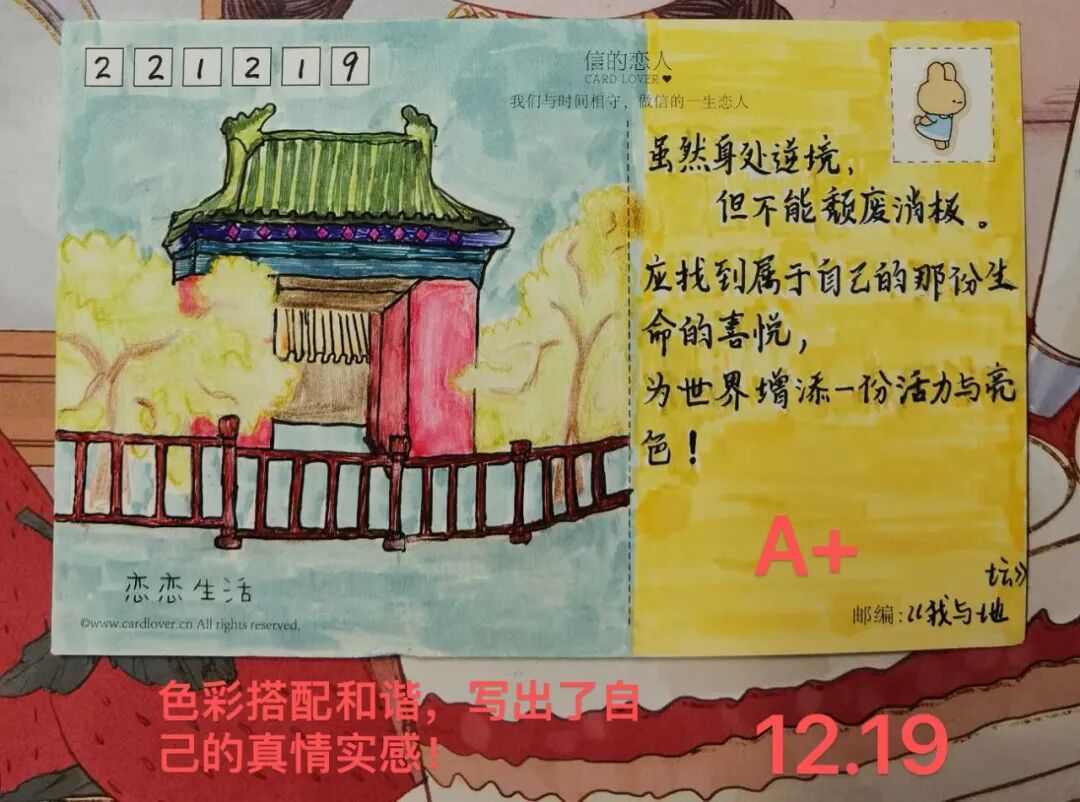 2 2 1 2 1 9
信的恋人
CARD LOVER
我们与时间相守，做信的一生恋人
虽然身处逆境，
但不能颓废消极。
应找到属于自己的那份生
命的喜悦，
为世界增添一份活力与亮
色！
A+
坛》
邮编:《我与地
恋恋生活
©www.cardlover.cn All rights reserved,
色彩搭配和谐，写出了自
己的真情实感！
12.19